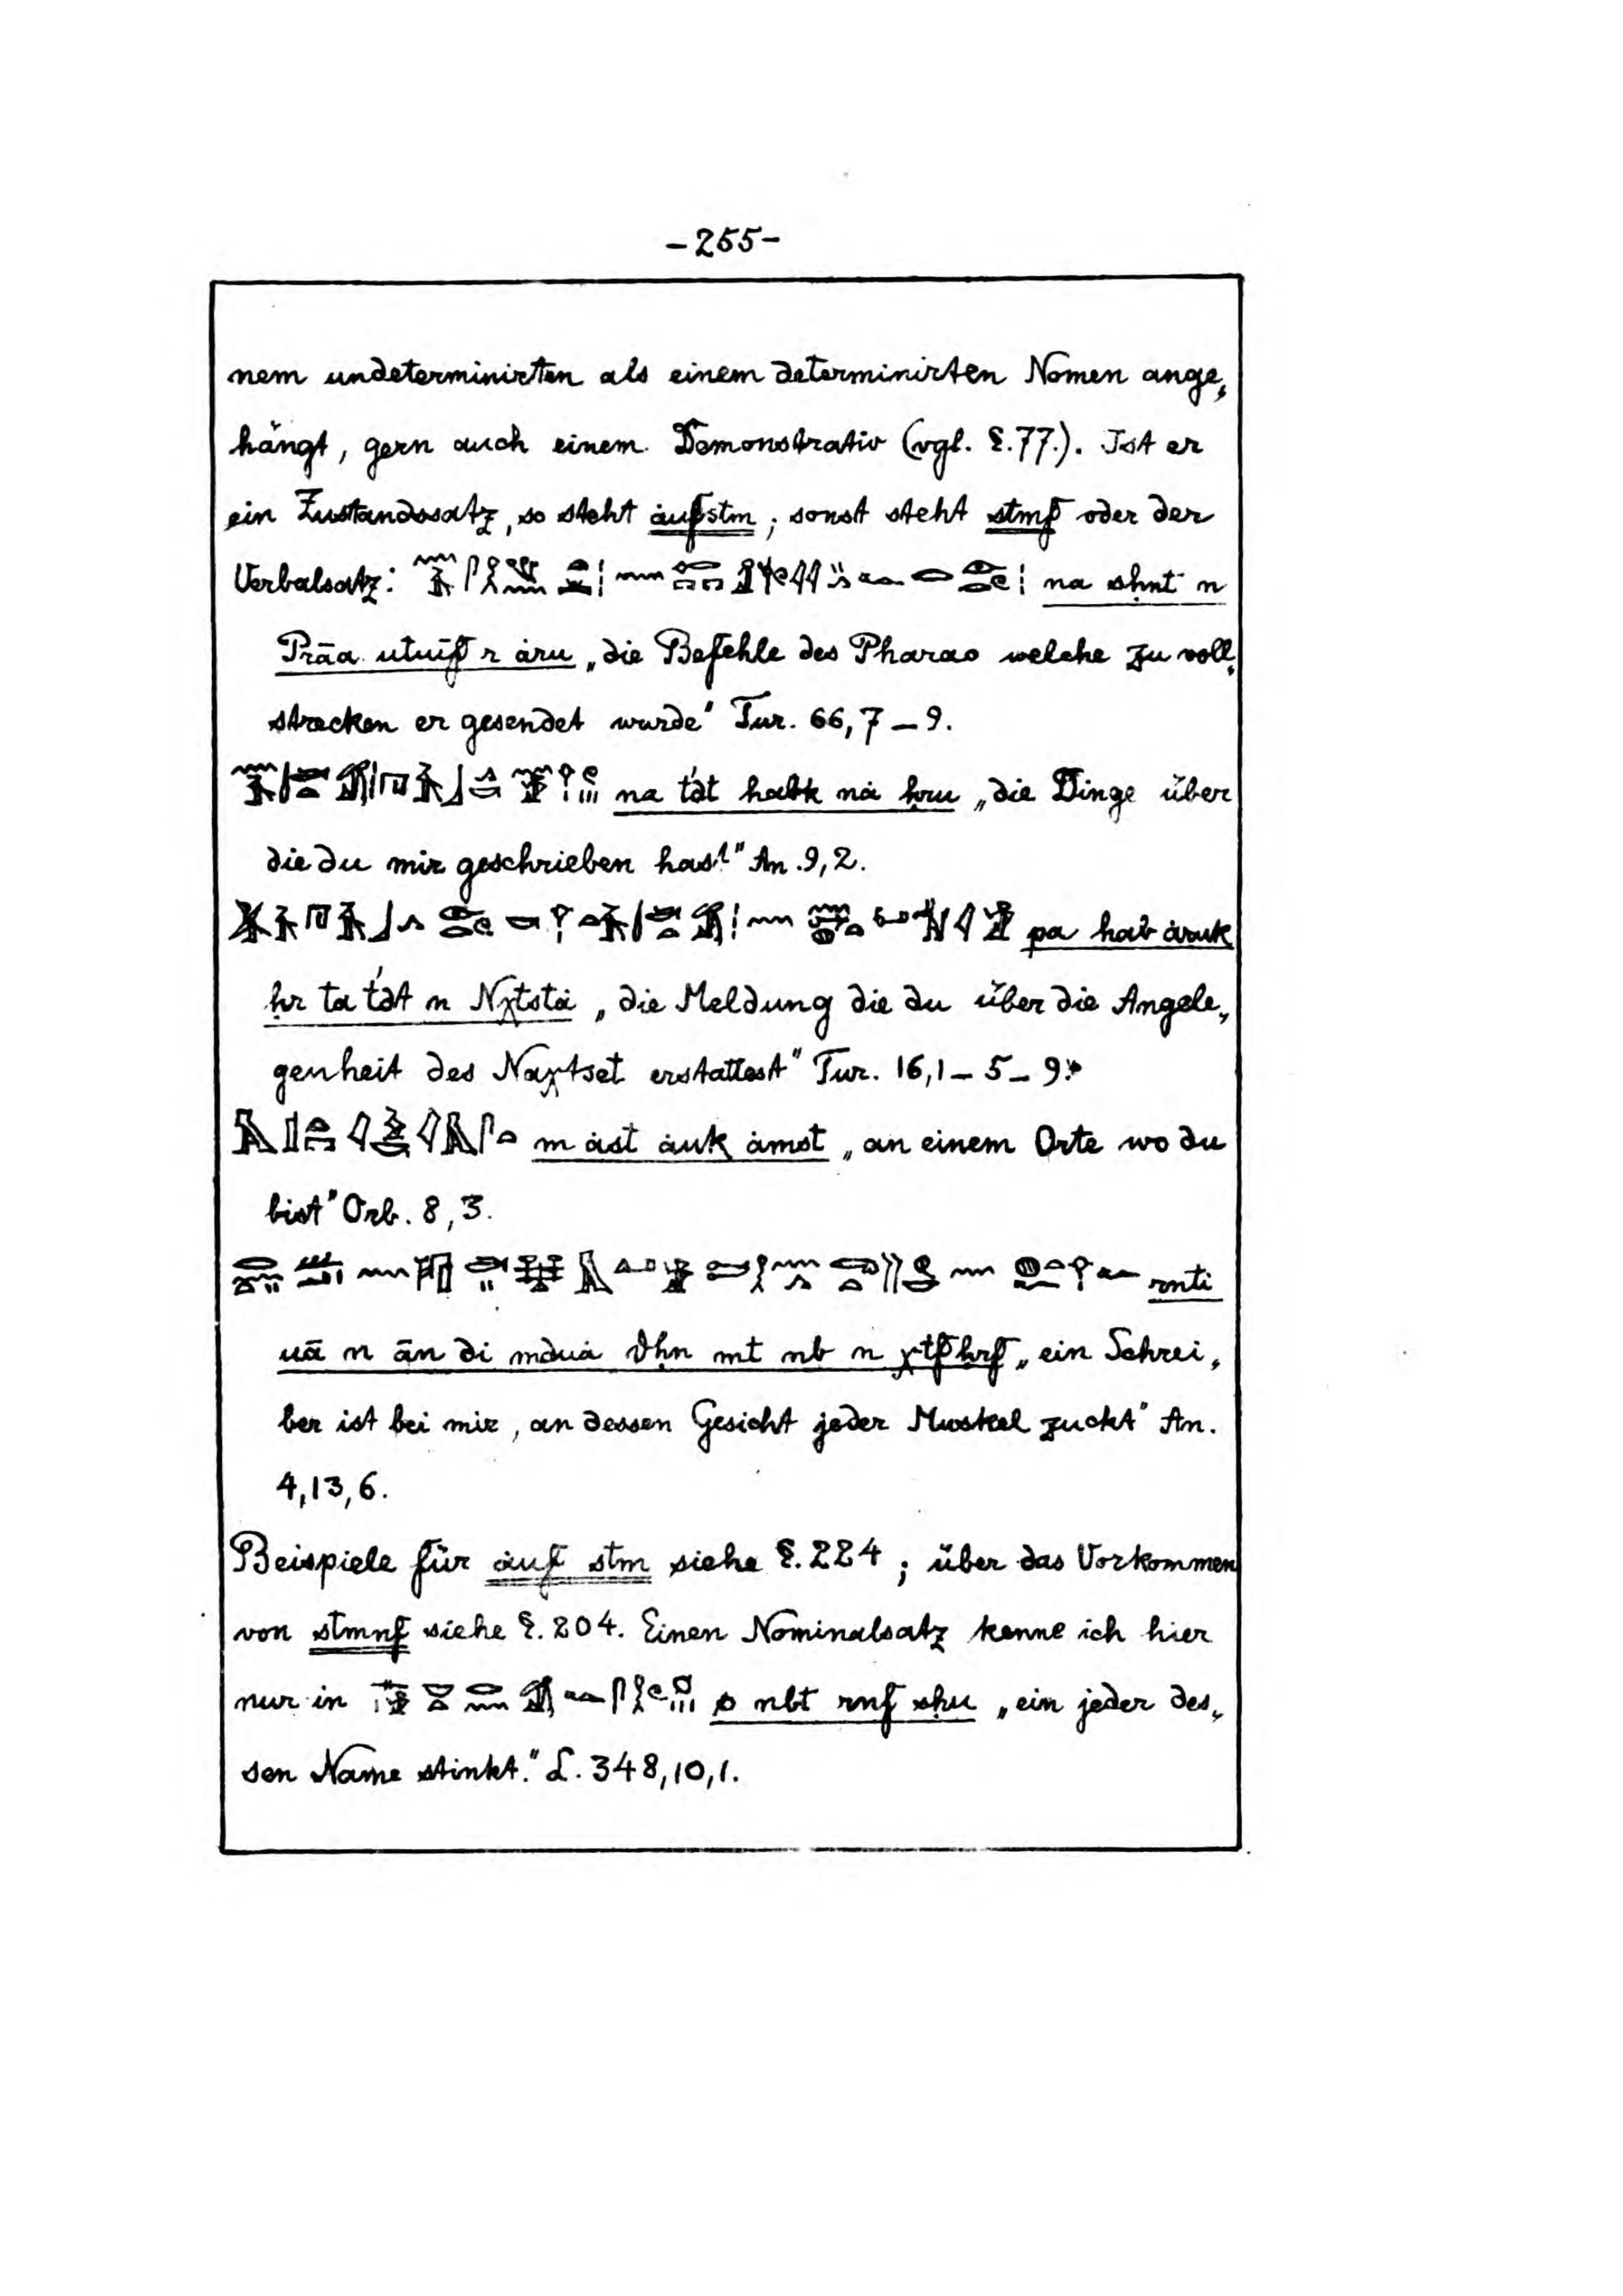 -255-
nem undeterminirten als einem determinirten Nomen ange„
hängt, gern auch einem Demonstrativ (vgl. §.77.). Ist er
ein Zustandssatz, so steht ȧufstm; sonst steht stmf oder der
Verbalsatz: na sḥnt n
Prāa utuif r ȧru „die Befehle des Pharao welche zu voll„
strecken er gesendet wurde" Tur. 66,7_9.
na t'at habk nȧ ḥru „die Dinge über
die du mir geschrieben hast" An.9,2.
pa hab ȧruk
ḥr ta t'at n Nχtstȧ „die Meldung die du über die Angele„
genheit des Naχtset erstattest" Tur. 16,1_5_9.
m ȧst ȧuk ȧmst „an einem Orte wo du
bist" Orb. 8,3.
rnti
uā n ān di mduȧ dhn mt nb n χtfḥrf „ein Schrei„
ber ist bei mir, an dessen Gesicht jeder Muskel zuckt" An.
4,13,6.
Beispiele für ȧuf stm siehe §.224; über das Vorkommen
von stmnf siehe §.204. Einen Nominalsatz kenne ich hier
nur in s nbt rnf sḥu „ein jeder des„
sen Name stinkt." L.348,10,1.